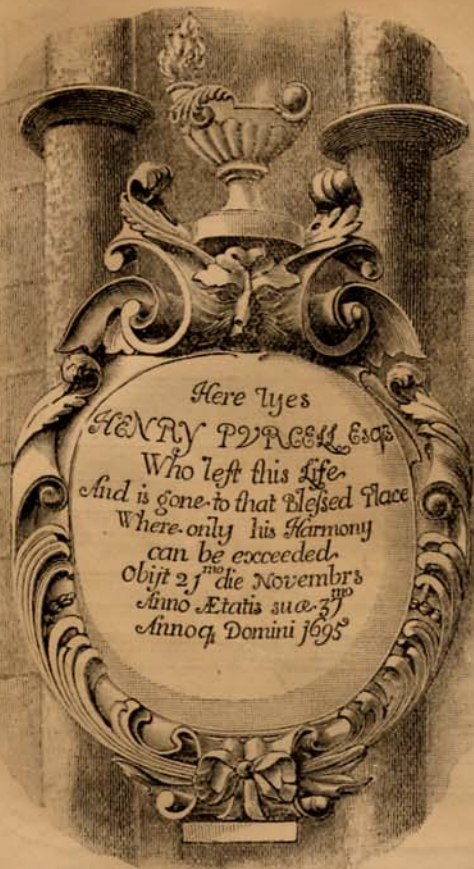 Here lyes
HENRY PVRCELL Esqr.
Who left this Life
And is gone to that Blessed Place
Where only his Harmony
can be exceeded
Obijt 21mo die Novembrs
Anno Ætatis suæ 37mo
Annoq Domini 1695